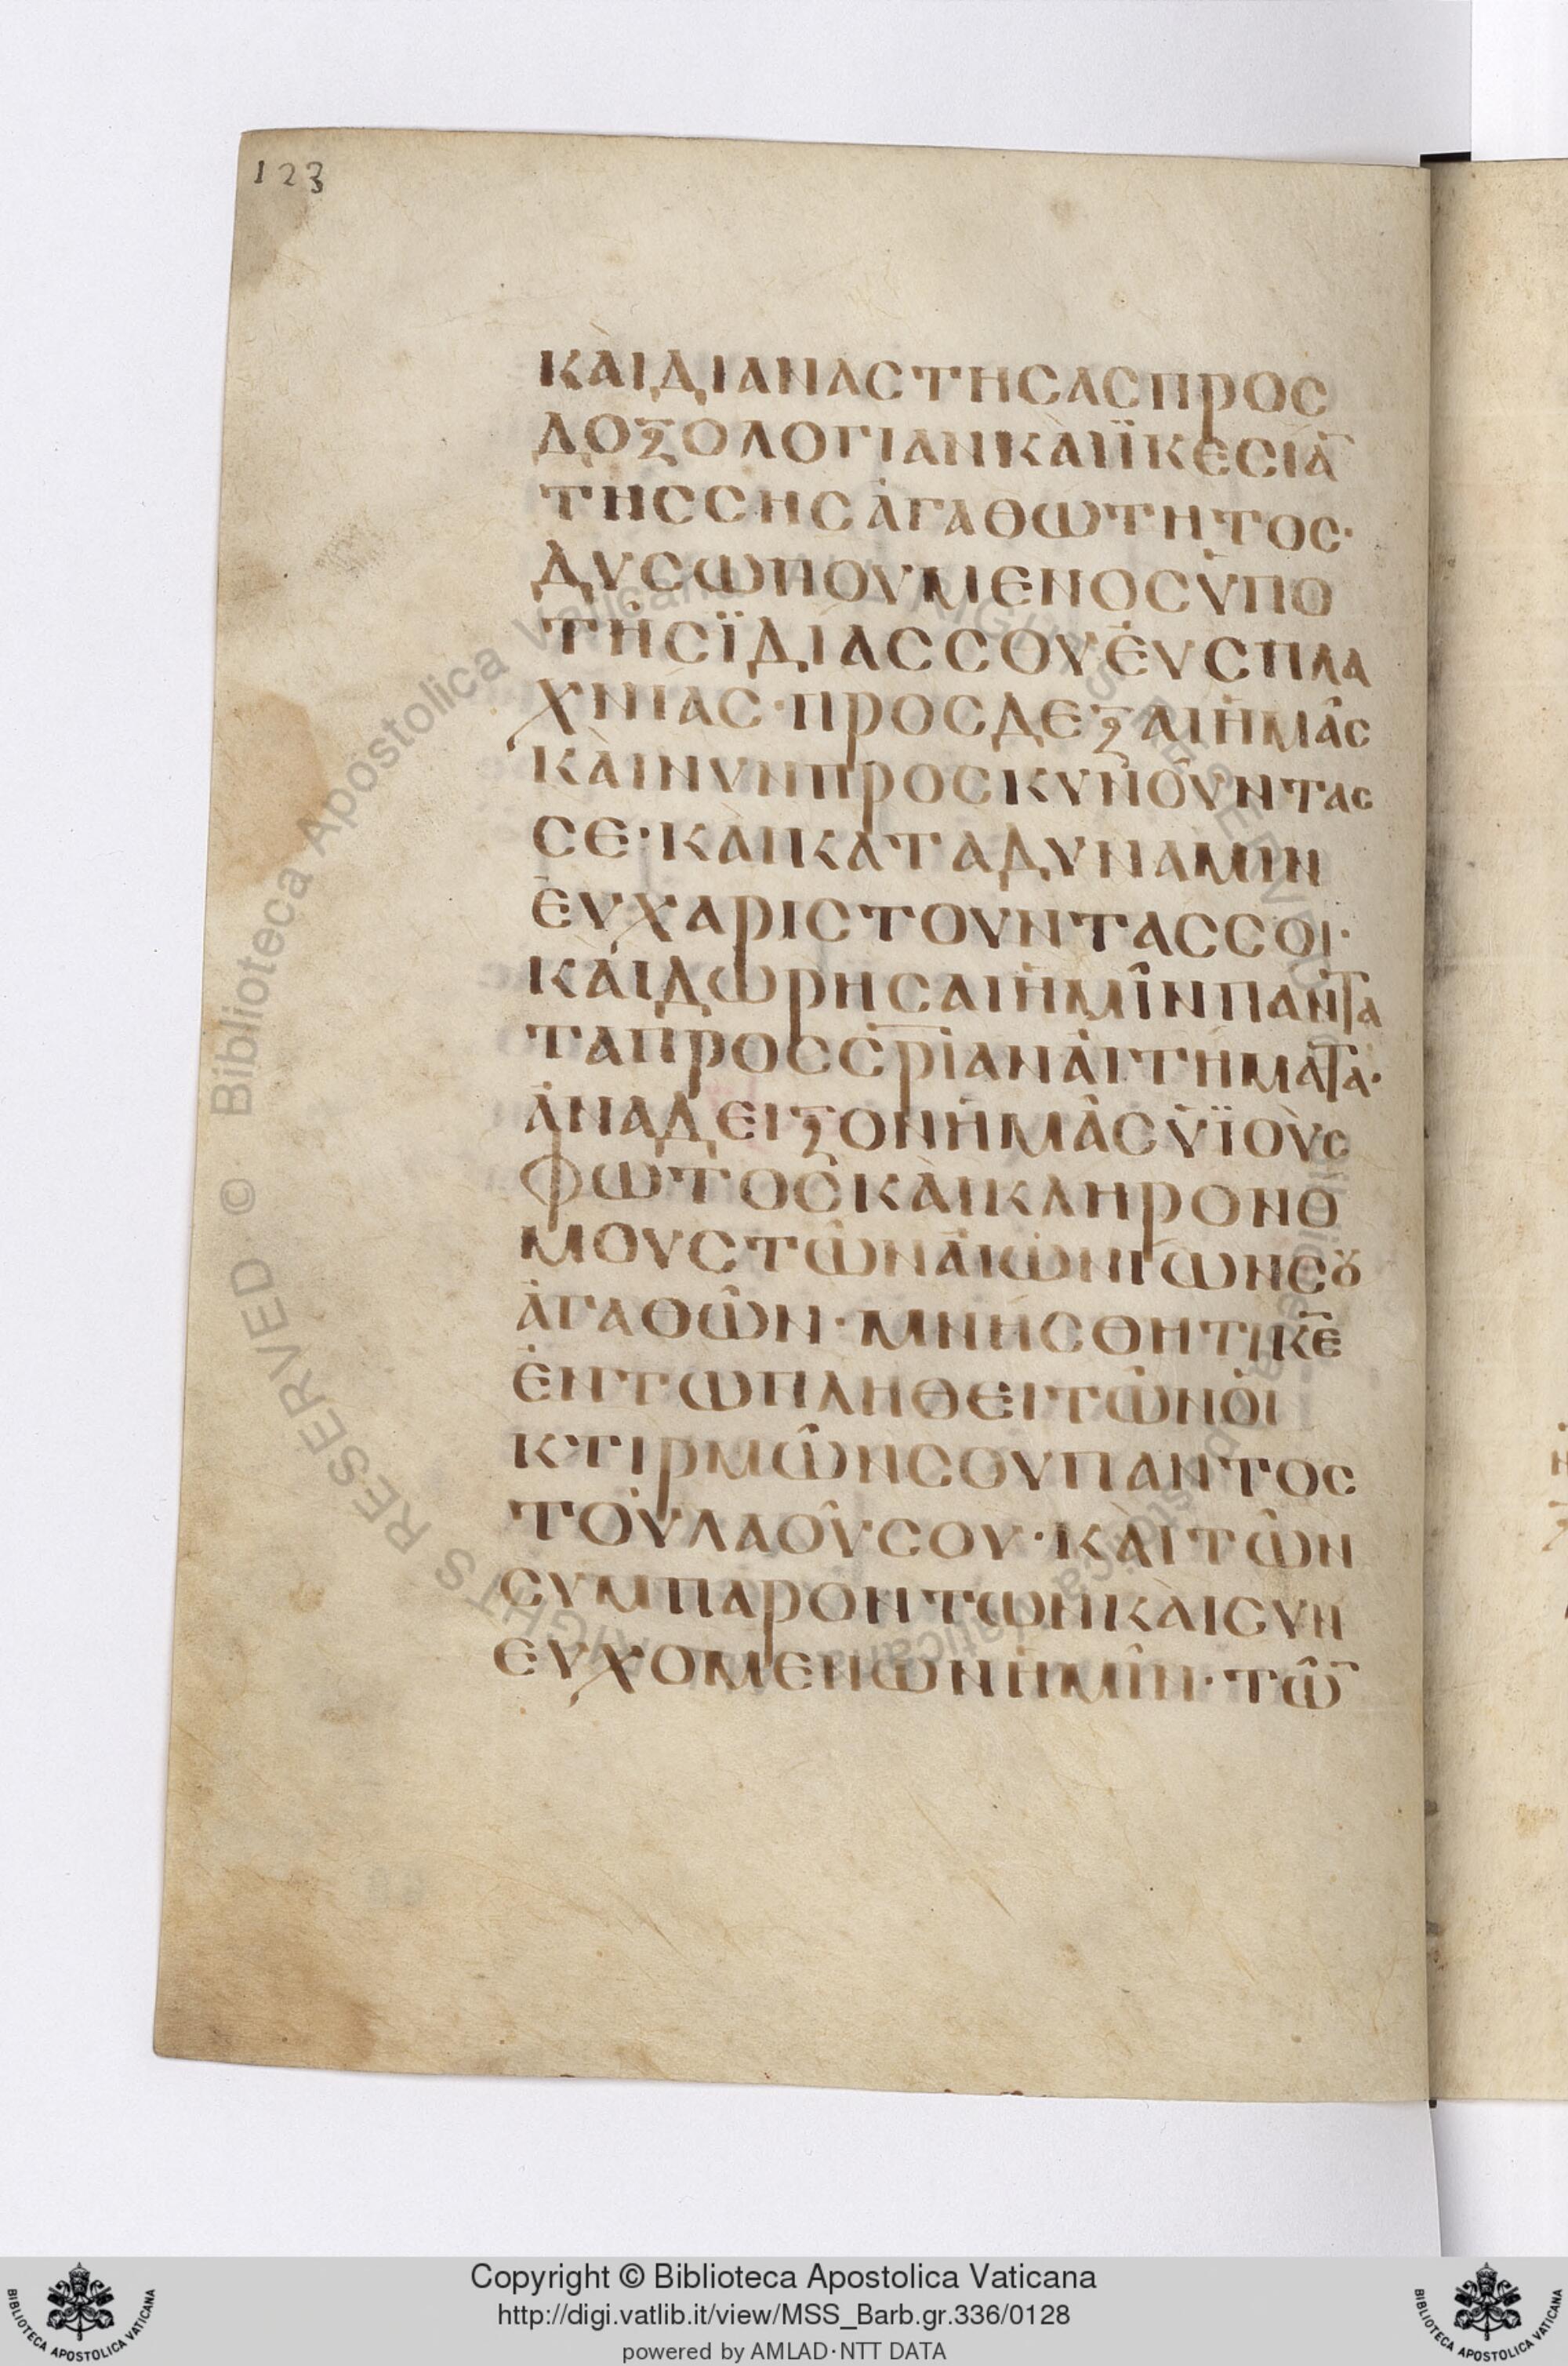 123
ΚΑῚΔΙΑΝΑCΤΗCΑCΠΡΟC
ΔΟΞΟΛΟΓΊΑΝΚΑῚΪΚΕCΊΑ̅
ΤΗCCΗCἈΓΑΘΩΤΗΤΟC·
ΔΥCΩΠΟΥΜΕΝΟCὙΠΟ
ΤΗCΪΔΙΑCCΟΥἘΥCΠΛΑ
ΧΝΊΑC·ΠΡΟCΔΕΞΑΙἩΜΑ͂C
ΚΑῚΝΥΝΠΡΟCΚΥΝΟΥ͂ΝΤΑC
CΕ·ΚΑῚΚΑΤΑΔΥΝΑΜΙΝ
ἘΥΧΑΡΙCΤΟΥΝΤΑCCΟΙ·
ΚΑῚΔΩΡΗCΑΙἩΜΙ͂ΝΠΑΝΤΑ
ΤΑΠΡΟCC̅Ρ̅Ι̅ΑΝἈΙΤΉΜΑΤΑ·
ἈΝΑΔΕΙΞΟΝἩΜΑ͂CὙΪΟῪC
ΦΩΤΟCΚΑῚΚΛΗΡΟΝΟ
ΜΟΥCΤΩ͂ΝἈΙΩΝΊΩΝCȢ
ἈΓΑΘΩ͂Ν·ΜΝΉCΘΗΤΙΚ̅Ε̅
ἘΝΤΩΠΛΗΘΕΙΤΩ͂ΝὈΙ
ΚΤΙΡΜΩ͂ΝCΟΥΠΑΝΤΟC
ΤΟΥΛΑΟΥ͂CΟΥ·ΚΑῚΤΩ͂Ν
CΥΜΠΑΡΟΝΤΩΝΚΑῚCΥΝ
ΕΥΧΟΜΕΝΩΝἩΜΙ͂Ν·ΤΩ͂̅
Biblioteca Apostolica Vaticana
ALL RIGHTS RESERVED ©
Copyright © Biblioteca Apostolica Vaticana
http://digi.vatlib.it/view/MSS_Barb.gr.336/0128
powered by AMLAD·NTT DATA
BIBLIOTECA APOSTOLICA VATICANA
BIBLIOTECA APOSTOLICA VATICANA